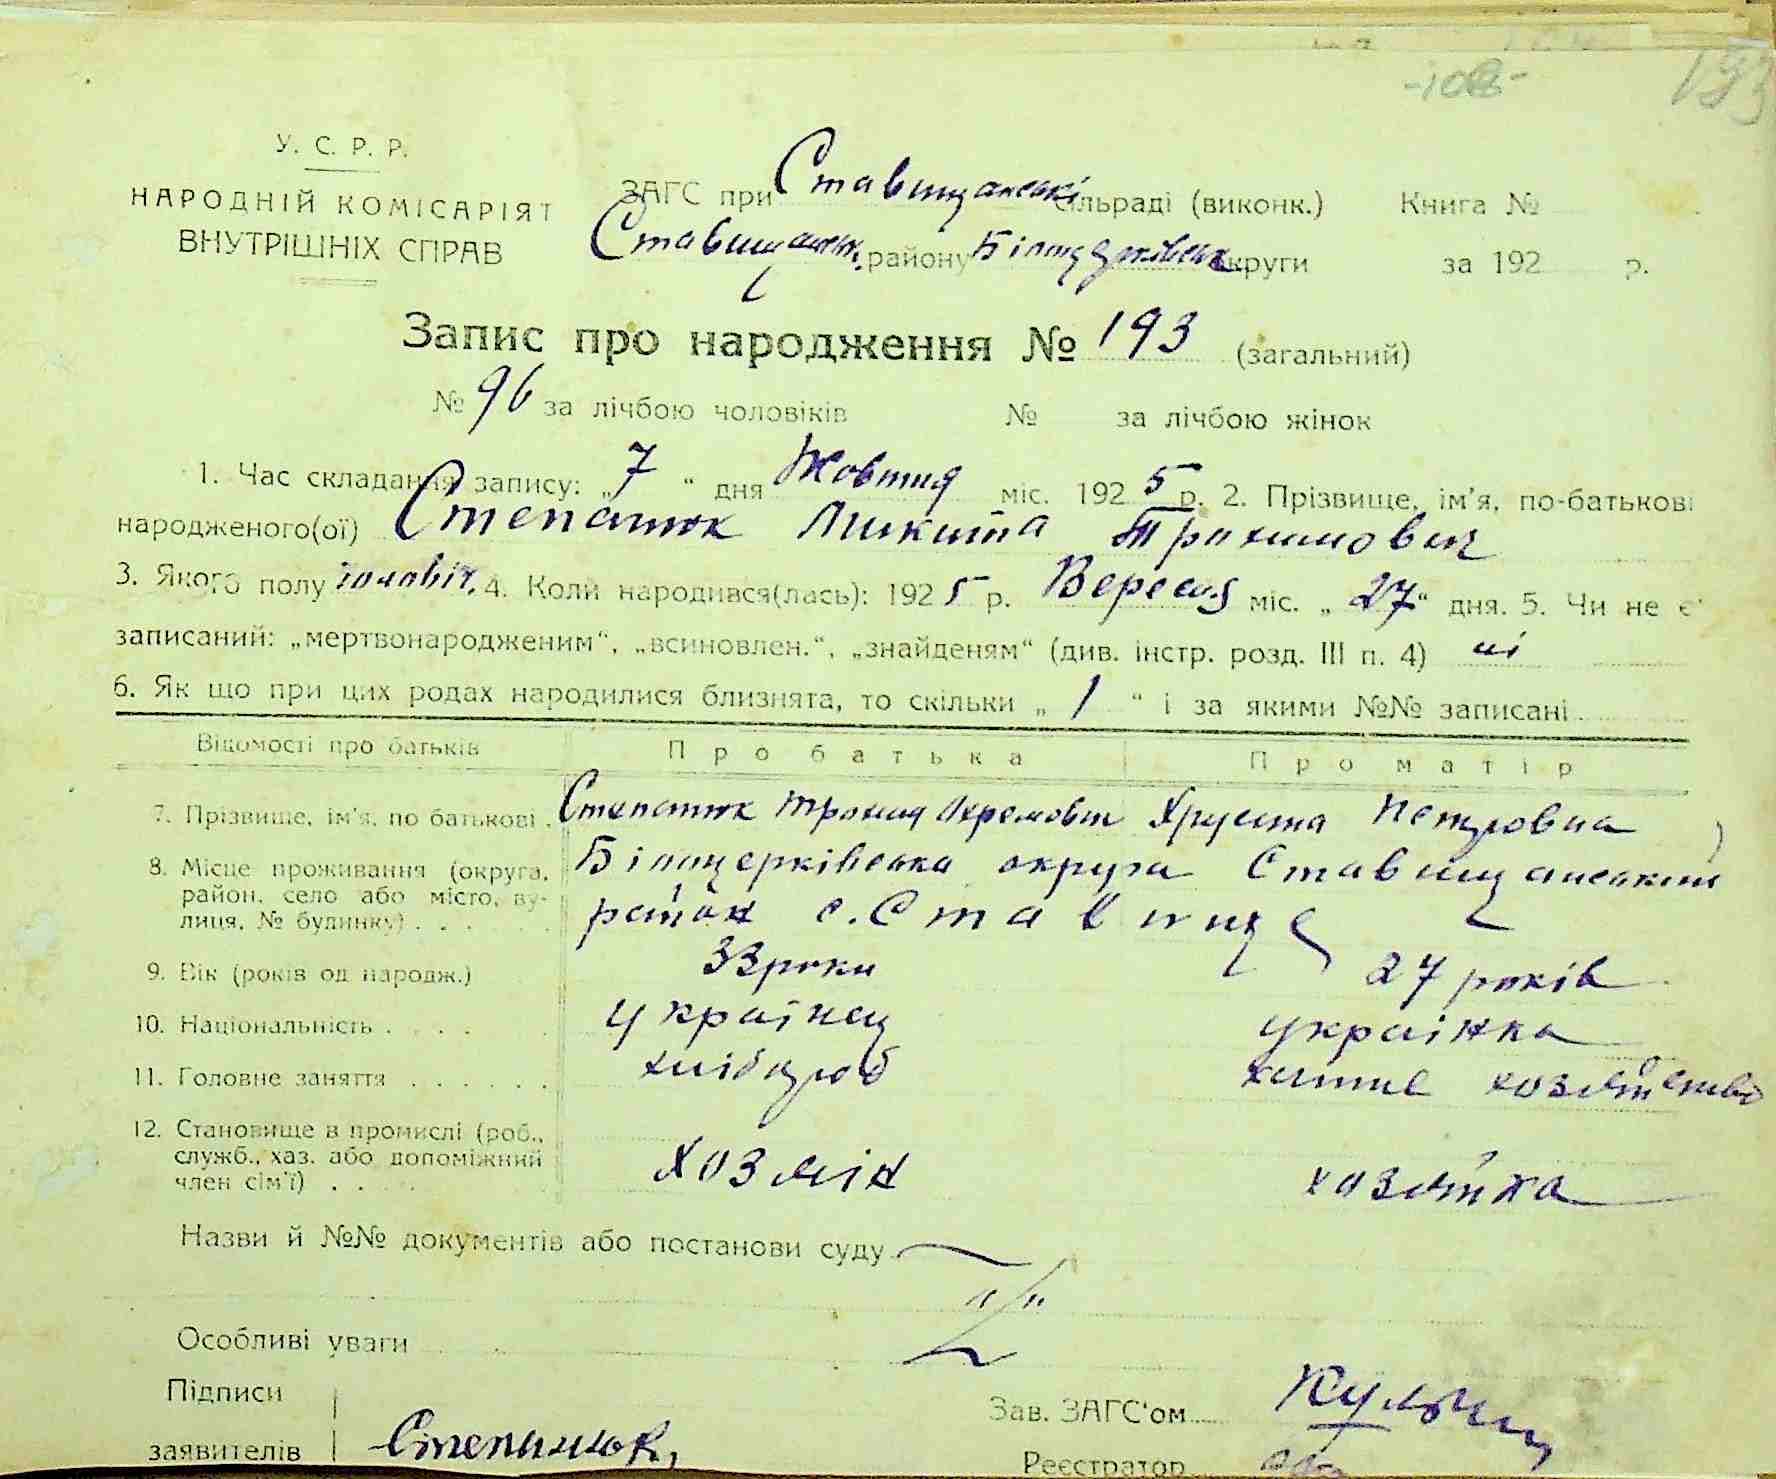 -108-
193
У. С. Р. Р.
НАРОДНІЙ КОМІСАРІЯТ
ВНУТРІШНІХ СПРАВ
ЗАГС при Ставищанські сільраді (виконк.) Книга №
Ставищанськ. району Білоцерківськ округи за 192 р.
Запис про народження № 193 (загальний)
№ 96 за лічбою чоловіків № за лічбою жінок
1. Час складання запису: „7“ дня Жовтня міс. 1925 р. 2. Прізвище, ім'я, по-батькові
народженого(ої) Степанюк Микита Трохимович
3. Якого полу чоловіч. 4. Коли народився(лась): 1925 р. Вересня міс. „27“ дня. 5. Чи не є
записаний: „мертвонародженим“, „всиновлен.“, „знайденям“ (див. інстр. розд. III п. 4) ні
6. Як що при цих родах народилися близнята, то скільки „1“ і за якими №№ записані
Відомості про батьків Про батька Про матір
7. Прізвище, ім'я, по батькові. Степанюк Трохим Охремович Хрусина Петровна
8. Місце проживання (округа, район, село або місто, вулиця, № будинку) Білоцерківська округа Ставищанський
район с. Ставище
9. Вік (років од народж.) 33 роки 27 років
10. Національність українец українка
11. Головне заняття хлібороб хатне хозяйство
12. Становище в промислі (роб., служб., хаз. або допоміжний член сім'ї) хозяін хозяйка
Назви й №№ документів або постанови суду
Особливі уваги
Підписи
заявителів Степанюк
Зав. ЗАГС'ом
Реєстратор